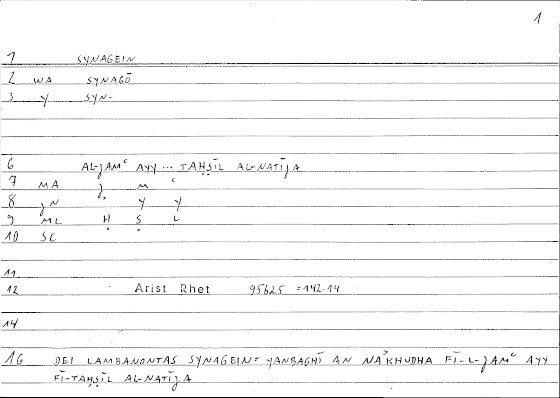 1
1 SYNAGEIN
2 WA SYNAGŌ
3 Y SYN-
6 AL-JAMᶜ AYY ... TAḤṢĪL AL-NATĪJA
7 MA J M ᶜ
8 JN ʾ Y Y
9 ML Ḥ Ṣ L
10 SC
11
12 Arist Rhet 95b25 =142.14
14
16 DEI LAMBANONTAS SYNAGEIN= YANBAGHĪ AN NAʾKHUDHA FĪ-L-JAMᶜ AYY
FĪ-TAḤṢĪL AL-NATĪJA